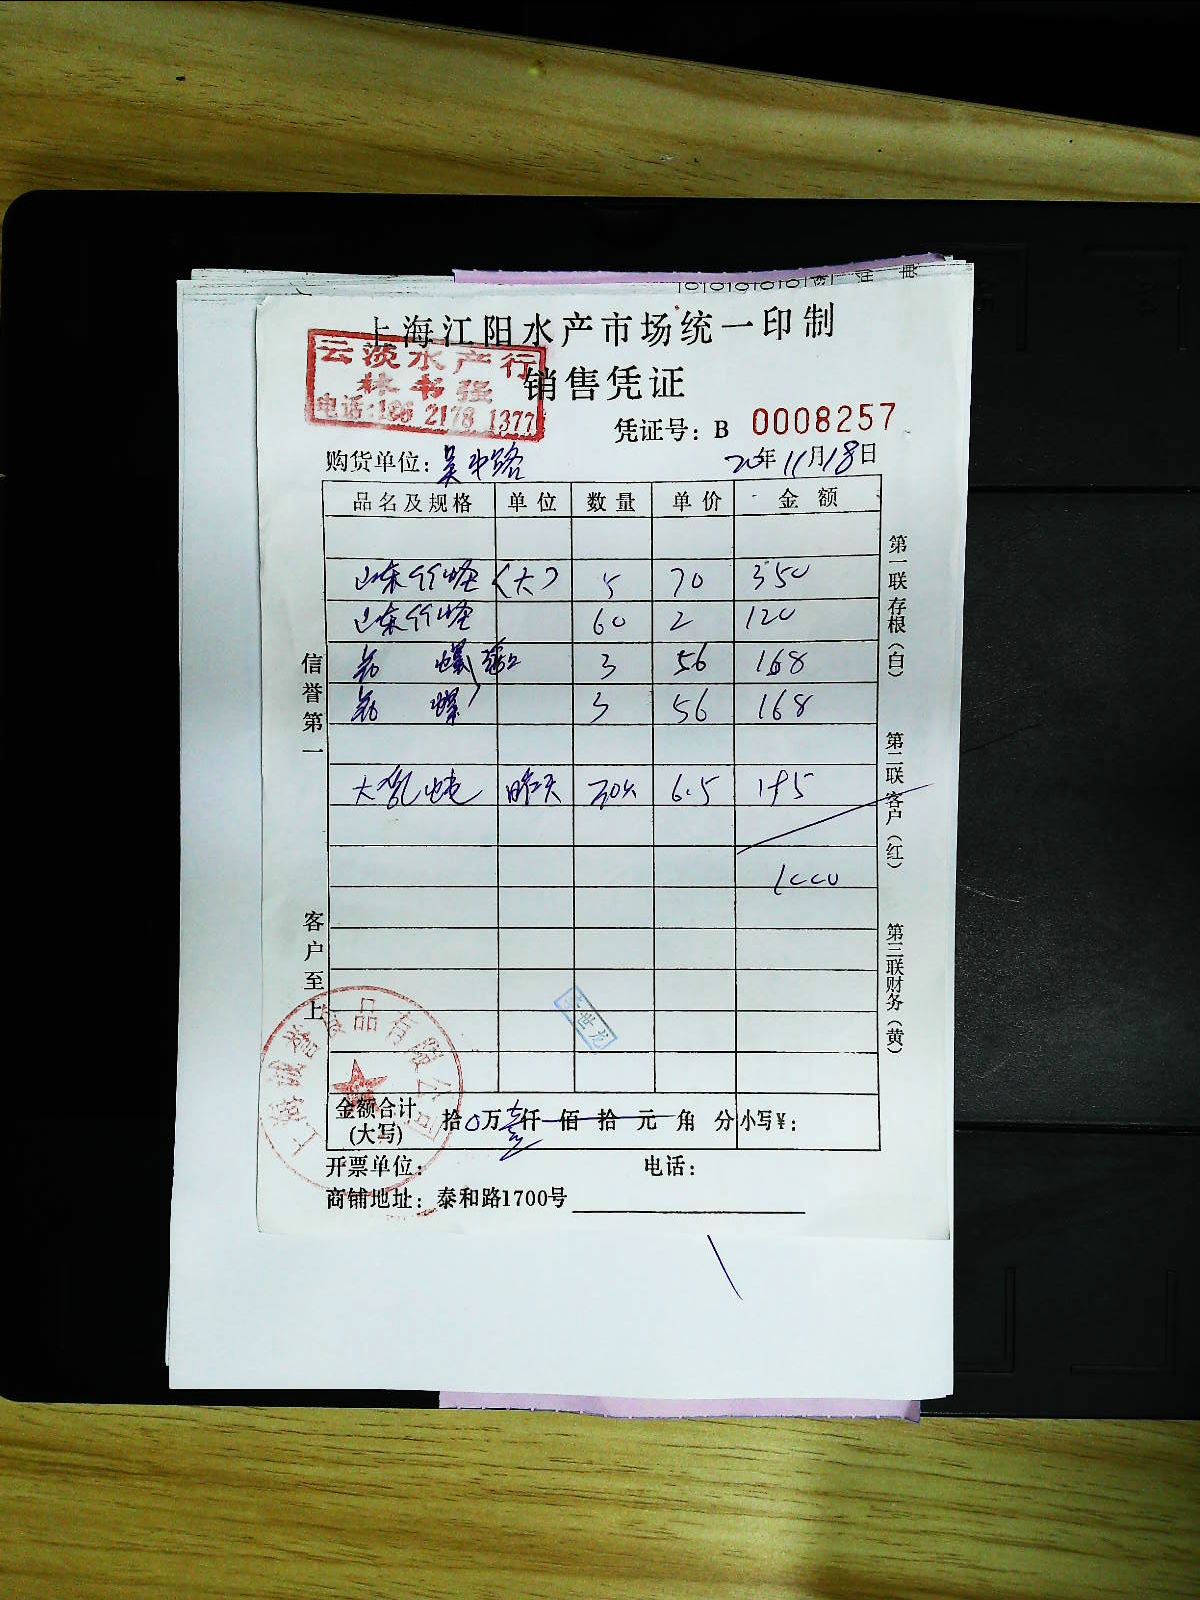 上海江阳水产市场统一印制
云淡水产行
林书强
电话:186 2178 1377
销售凭证
凭证号: B 0008257
购货单位: 吴中路
20年11月18日
品名及规格 单位 数量 单价 金额
山东竹蛏(大) 5 70 350
山东竹蛏 60 2 120
3 56 168
3 56 168
大 昨天 30只 6.5 195
1000
信誉第一
客户至上
第一联存根(白)
第二联客户(红)
第三联财务(黄)
金额合计
(大写)
拾0万壹仟佰拾元角分 小写¥:
开票单位:
电话:
商铺地址: 泰和路1700号
品有限公司
世龙